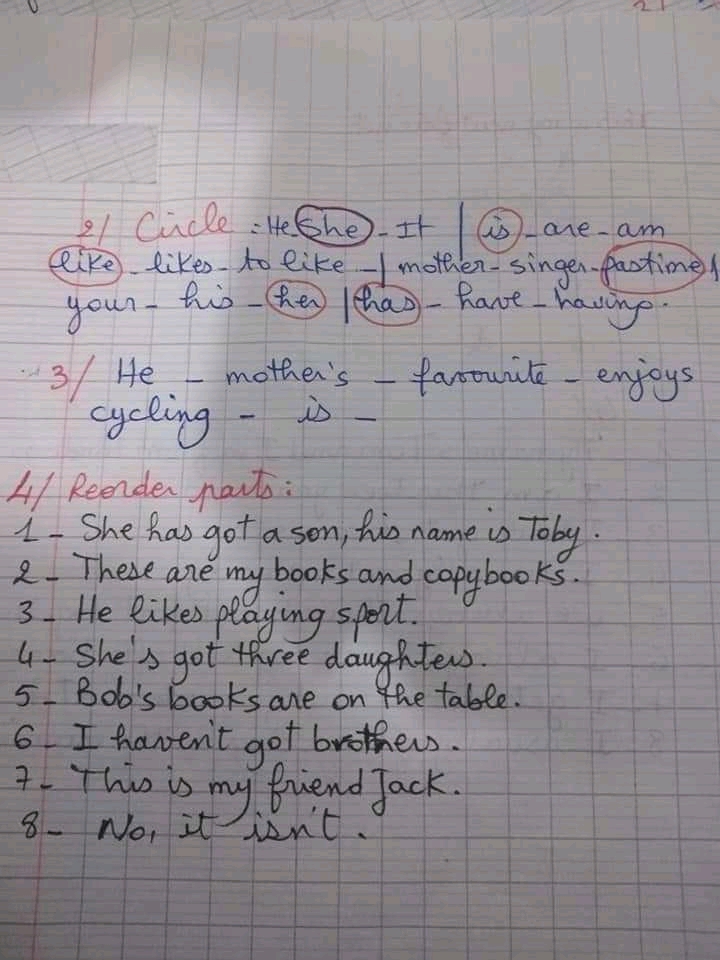 2/ Circle : He - She - It | is - are - am
like - likes - to like - | mother - singer - pastime |
your - his - her | has - have - having.
3/ He - mother's - favourite - enjoys
cycling - is -
4/ Reorder parts :
1 - She has got a son, his name is Toby.
2 - These are my books and copybooks.
3 - He likes playing sport.
4 - She's got three daughters.
5 - Bob's books are on the table.
6 - I haven't got brothers.
7 - This is my friend Jack.
8 - No, it isn't.